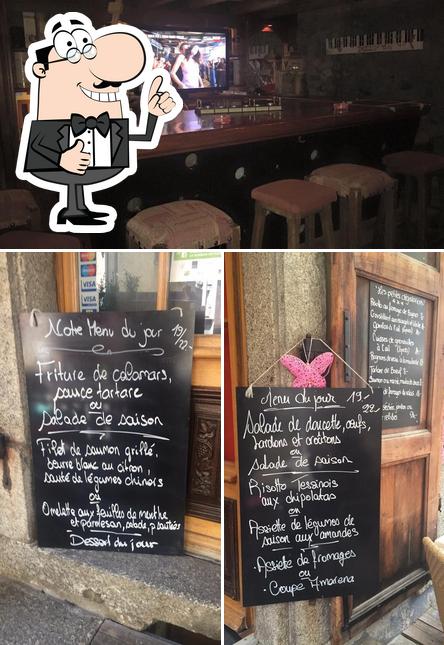 VISA
VISA
Notre Menu du jour 19/22.-
Friture de calamars,
sauce tartare
ou
Salade de saison
Filet de saumon grillé,
beurre blanc au citron,
sauté de légumes chinois
ou
Omelette aux feuilles de menthe
et parmesan, salade, p. sautées
Dessert du jour
Menu du jour 19.-
22.-
Salade de doucette, œufs,
lardons et croûtons
ou
Salade de saison
Risotto Tessinois
aux chipolatas
ou
Assiette de légumes de
saison aux amandes
Assiette de fromages
ou
Coupe Amarena
Les petites dégustations